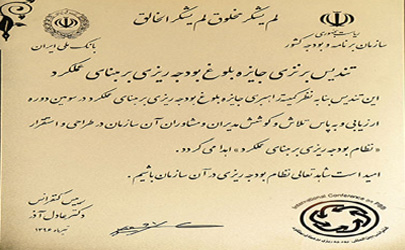 لم یشکر مخلوق لم یشکر الخالق
ریاست جمهوری
سازمان برنامه و بودجه کشور
بانک ملی ایران
تندیس برنزی جایزه بلوغ بودجه ریزی بر مبنای عملکرد
این تندیس بنا به نظر کمیته راهبری جایزه بلوغ بودجه ریزی بر مبنای عملکرد در سومین دوره
ارزیابی و به پاس تلاش و کوشش مدیران و مشاوران آن سازمان در طراحی و استقرار
«نظام بودجه ریزی بر مبنای عملکرد» اهدا می گردد.
امید است شاهد تعالی نظام بودجه ریزی در آن سازمان باشیم.
رییس کنفرانس
دکتر عادل آذر
تیرماه ۱۳۹۶
International Conference on PBB